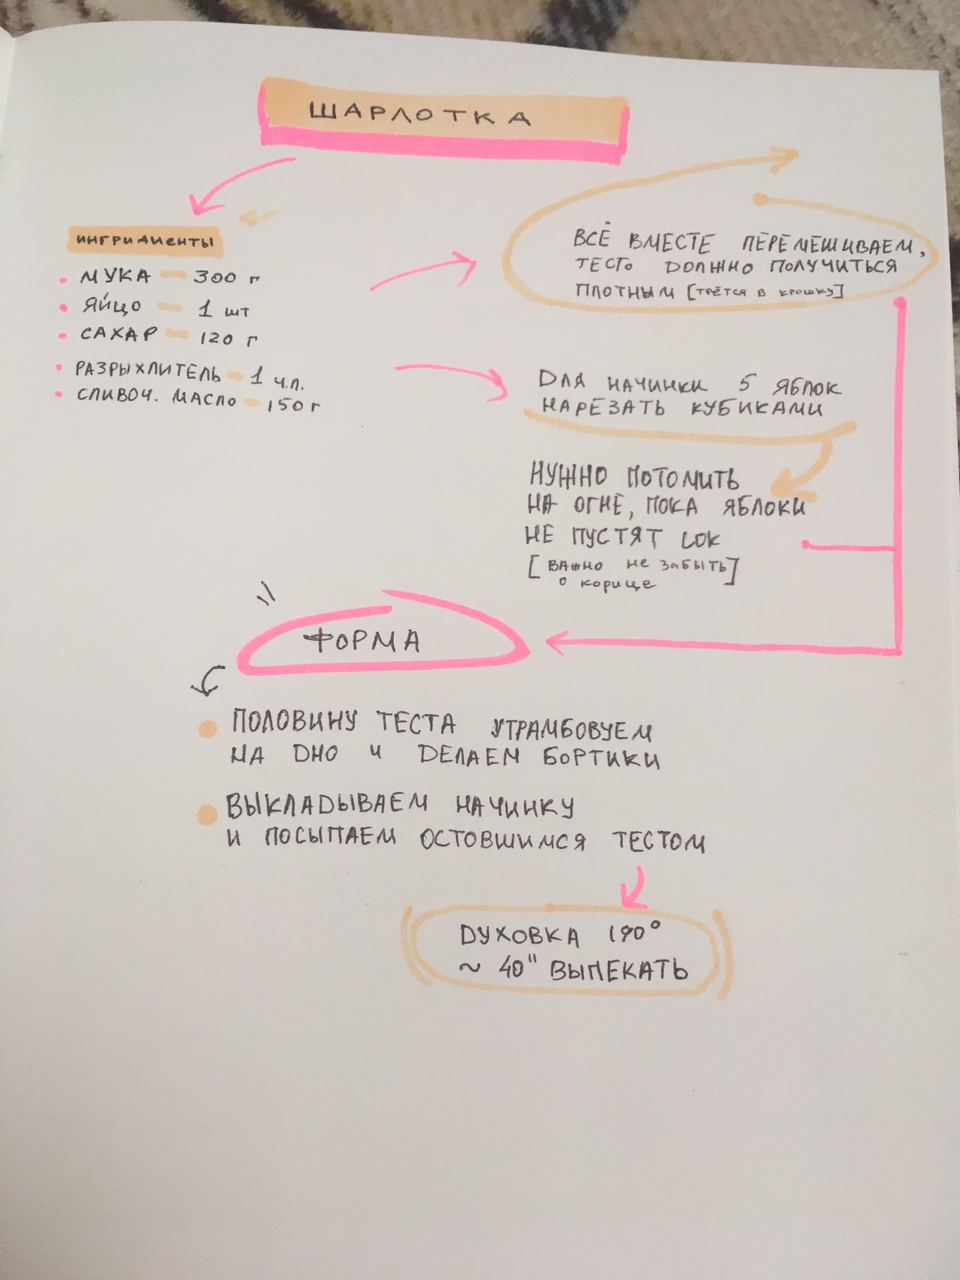 ШАРЛОТКА
ИНГРИДИЕНТЫ
МУКА — 300 г
ЯЙЦО — 1 шт
САХАР — 120 г
РАЗРЫХЛИТЕЛЬ — 1 ч.л.
СЛИВОЧ. МАСЛО — 150 г
ВСЁ ВМЕСТЕ ПЕРЕМЕШИВАЕМ,
ТЕСТО ДОЛЖНО ПОЛУЧИТЬСЯ
ПЛОТНЫМ [ТРЁТСЯ В КРОШКУ]
ДЛЯ НАЧИНКИ 5 ЯБЛОК
НАРЕЗАТЬ КУБИКАМИ
НУЖНО ПОТОМИТЬ
НА ОГНЕ, ПОКА ЯБЛОКИ
НЕ ПУСТЯТ СОК
[ВАЖНО НЕ ЗАБЫТЬ]
О КОРИЦЕ
ФОРМА
ПОЛОВИНУ ТЕСТА УТРАМБОВУЕМ
НА ДНО И ДЕЛАЕМ БОРТИКИ
ВЫКЛАДЫВАЕМ НАЧИНКУ
И ПОСЫПАЕМ ОСТОВШИМСЯ ТЕСТОМ
ДУХОВКА 190°
~ 40" ВЫПЕКАТЬ